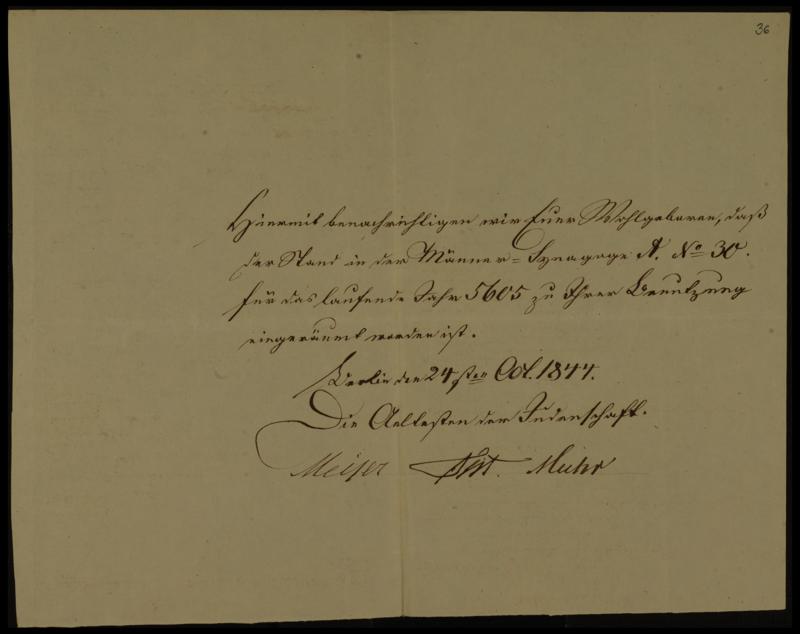 36
Hiermit benachrichtigen wir Euer Wohlgeboren, daß
der Stand in der Männer=Synagoge A. No 30.
für das laufende Jahr 5605 zu Ihrer Benutzung
eingeräumt worden ist.
Berlin den 24sten Oct. 1844.
Die Aeltesten der Judenschaft.
Meyer Muhr